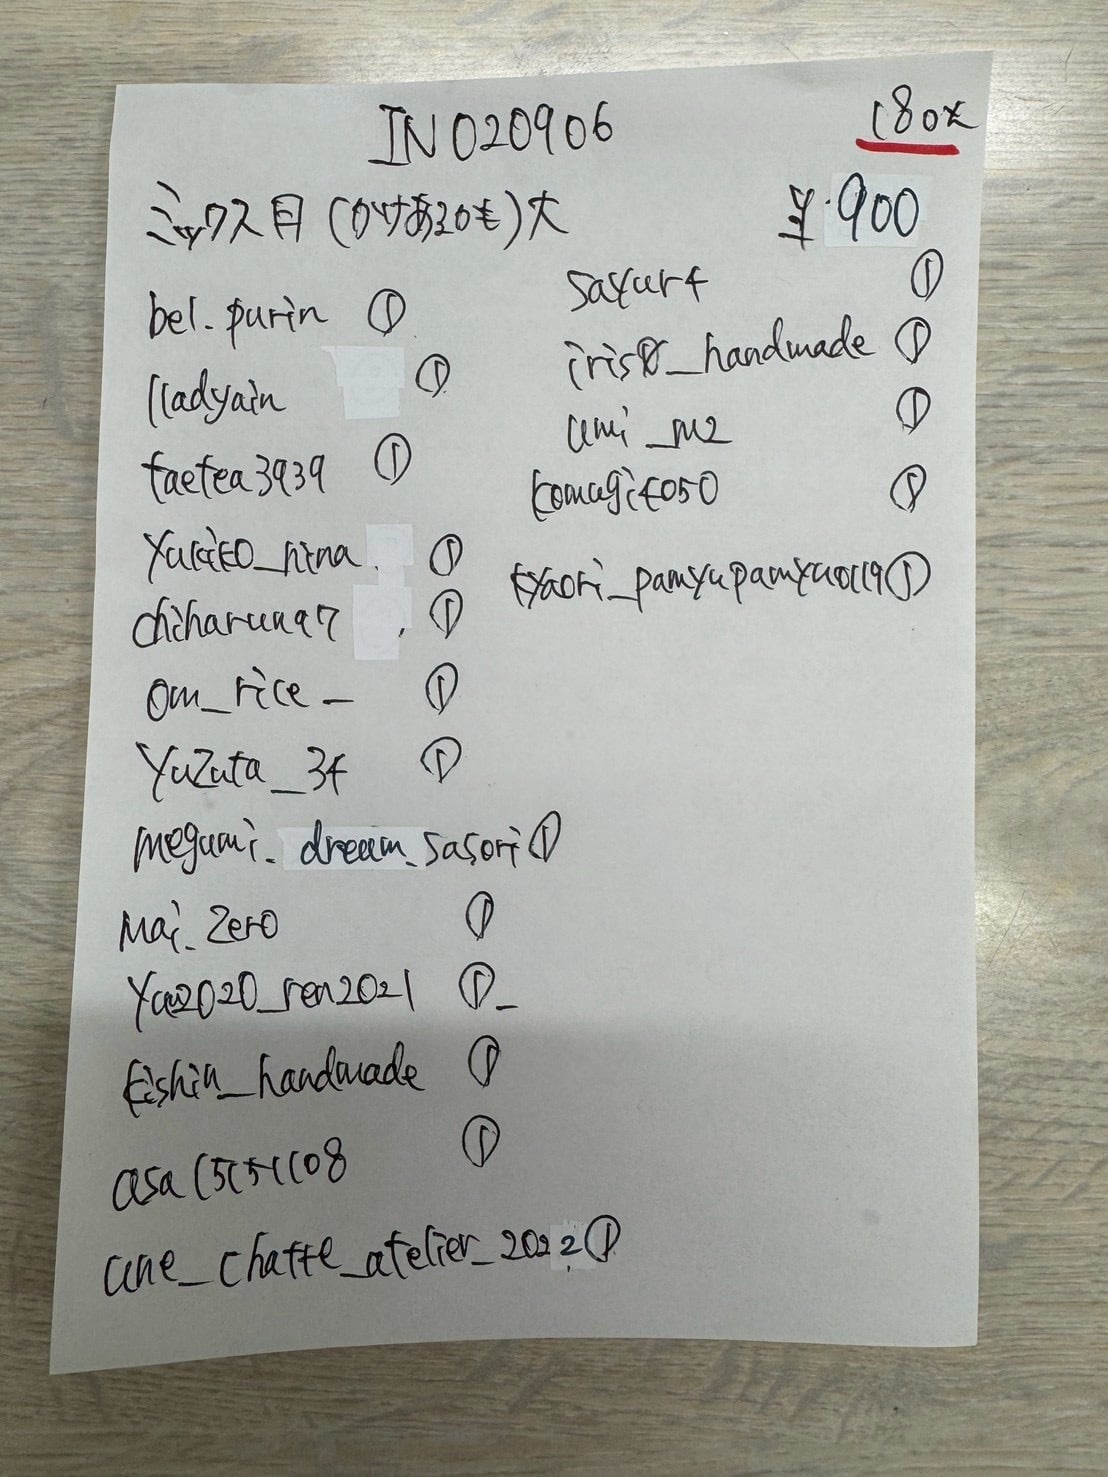 IN020906
180×
ミックス目(かけあるのも)大
¥900
bel.purin ①
lladyain ①
taetea3939 ①
Yukiko_nina. ①
chiharuna7 ①
om_rice_ ①
YuZuta_34 ①
megumi_dream_sasori ①
Mai_Zero ①
Yuu2020_ren2021 ①_
kishin_handmade ①
asa15151108 ①
une_chatte_atelier_2022 ①
sayur4 ①
iris8_handmade ①
umi_m2 ①
komugi4050 ①
kyaori_pamyupamyu0119 ①